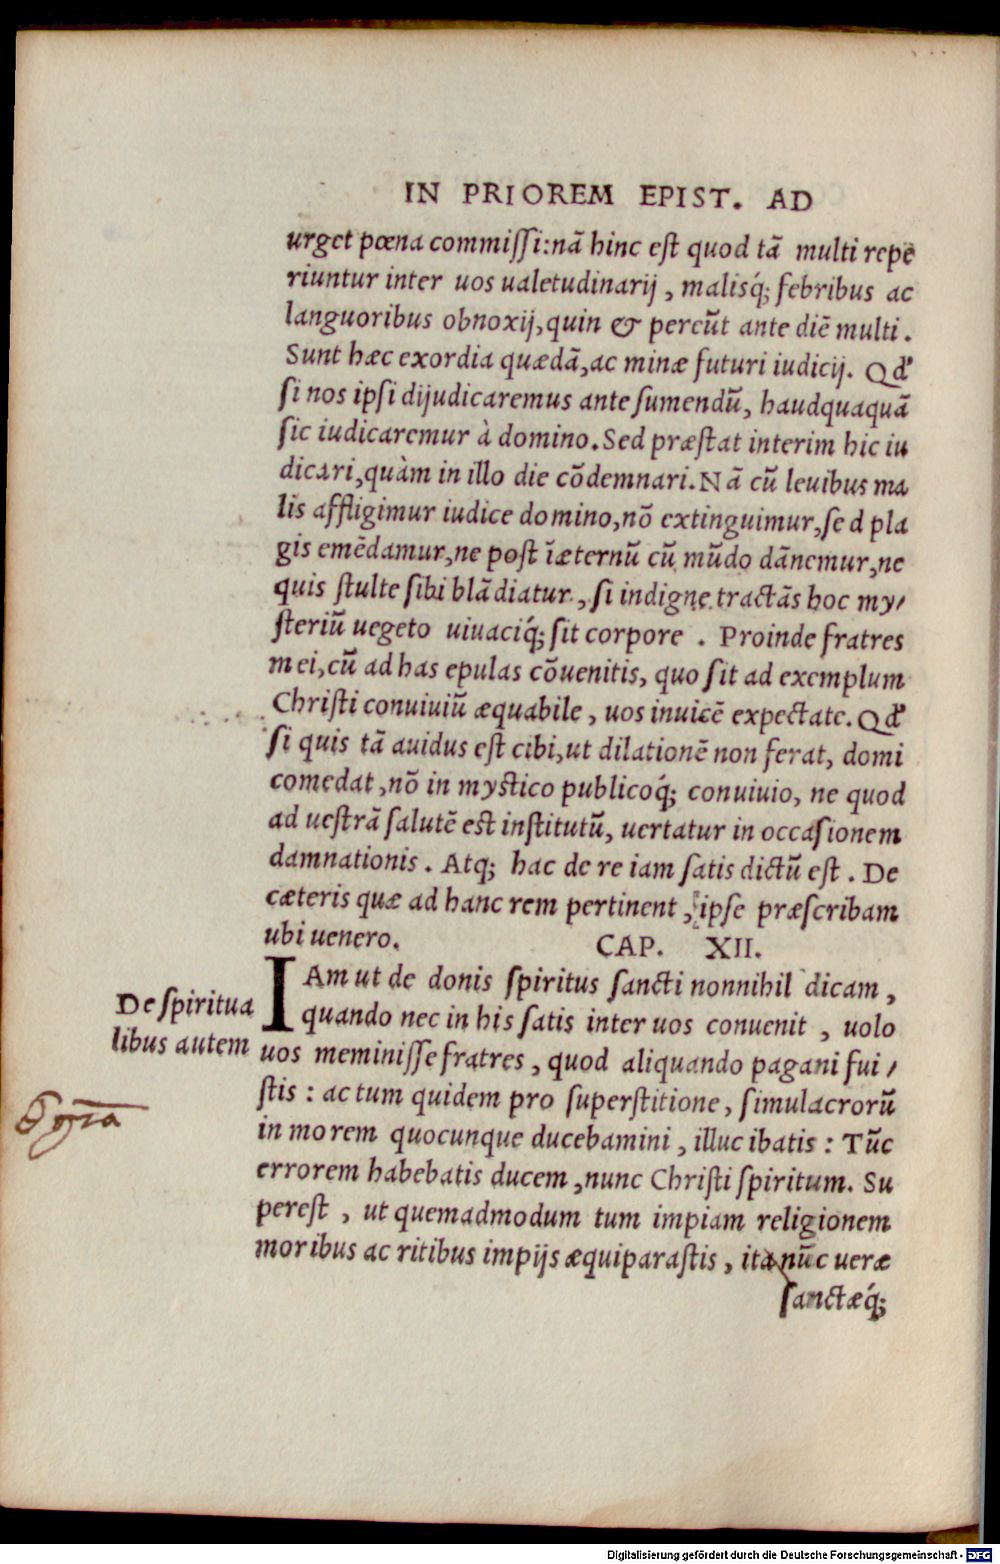 IN PRIOREM EPIST. AD
urget pœna commiſſi:nã hinc eſt quod tã multi repe
riuntur inter uos ualetudinarij, malisq́; febribus ac
languoribus obnoxij,quin & pereũt ante diẽ multi.
Sunt hæc exordia quædã,ac minæ futuri iudicij. Qd'
ſi nos ipſi dijudicaremus ante ſumendũ, haudquaquã
ſic iudicaremur à domino.Sed præſtat interim hic iu
dicari,quàm in illo die cõdemnari.Nã cũ leuibus ma
lis affligimur iudice domino,nõ extinguimur,ſed pla
gis emẽdamur,ne poſt ĩæternũ cũ mũdo dãnemur,ne
quis ſtulte ſibi blãdiatur, ſi indigne tractãs hoc my/
ſteriũ uegeto uiuaciq́; ſit corpore . Proinde fratres
mei,cũ ad has epulas cõuenitis, quo ſit ad exemplum
Chriſti conuiuiũ æquabile, uos inuicẽ expectate. Qd'
ſi quis tã auidus eſt cibi,ut dilationẽ non ferat, domi
comedat,nõ in myſtico publicoq́; conuiuio, ne quod
ad ueſtrã ſalutẽ eſt inſtitutũ, uertatur in occaſionem
damnationis. Atq; hac de re iam ſatis dictũ eſt. De
cæteris quæ ad hanc rem pertinent, ipſe præſcribam
ubi uenero.
CAP. XII.
De ſpiritua
libus autem
IAm ut de donis ſpiritus ſancti nonnihil dicam,
quando nec in his ſatis inter uos conuenit, uolo
uos meminiſſe fratres, quod aliquando pagani fui/
ſtis: ac tum quidem pro ſuperſtitione, ſimulacrorũ
in morem quocunque ducebamini, illuc ibatis: Tũc
errorem habebatis ducem,nunc Chriſti ſpiritum. Su
pereſt, ut quemadmodum tum impiam religionem
moribus ac ritibus impijs æquiparaſtis, ita nũc ueræ
ſanctæq́;
Digitalisierung gefördert durch die Deutsche Forschungsgemeinschaft - DFG